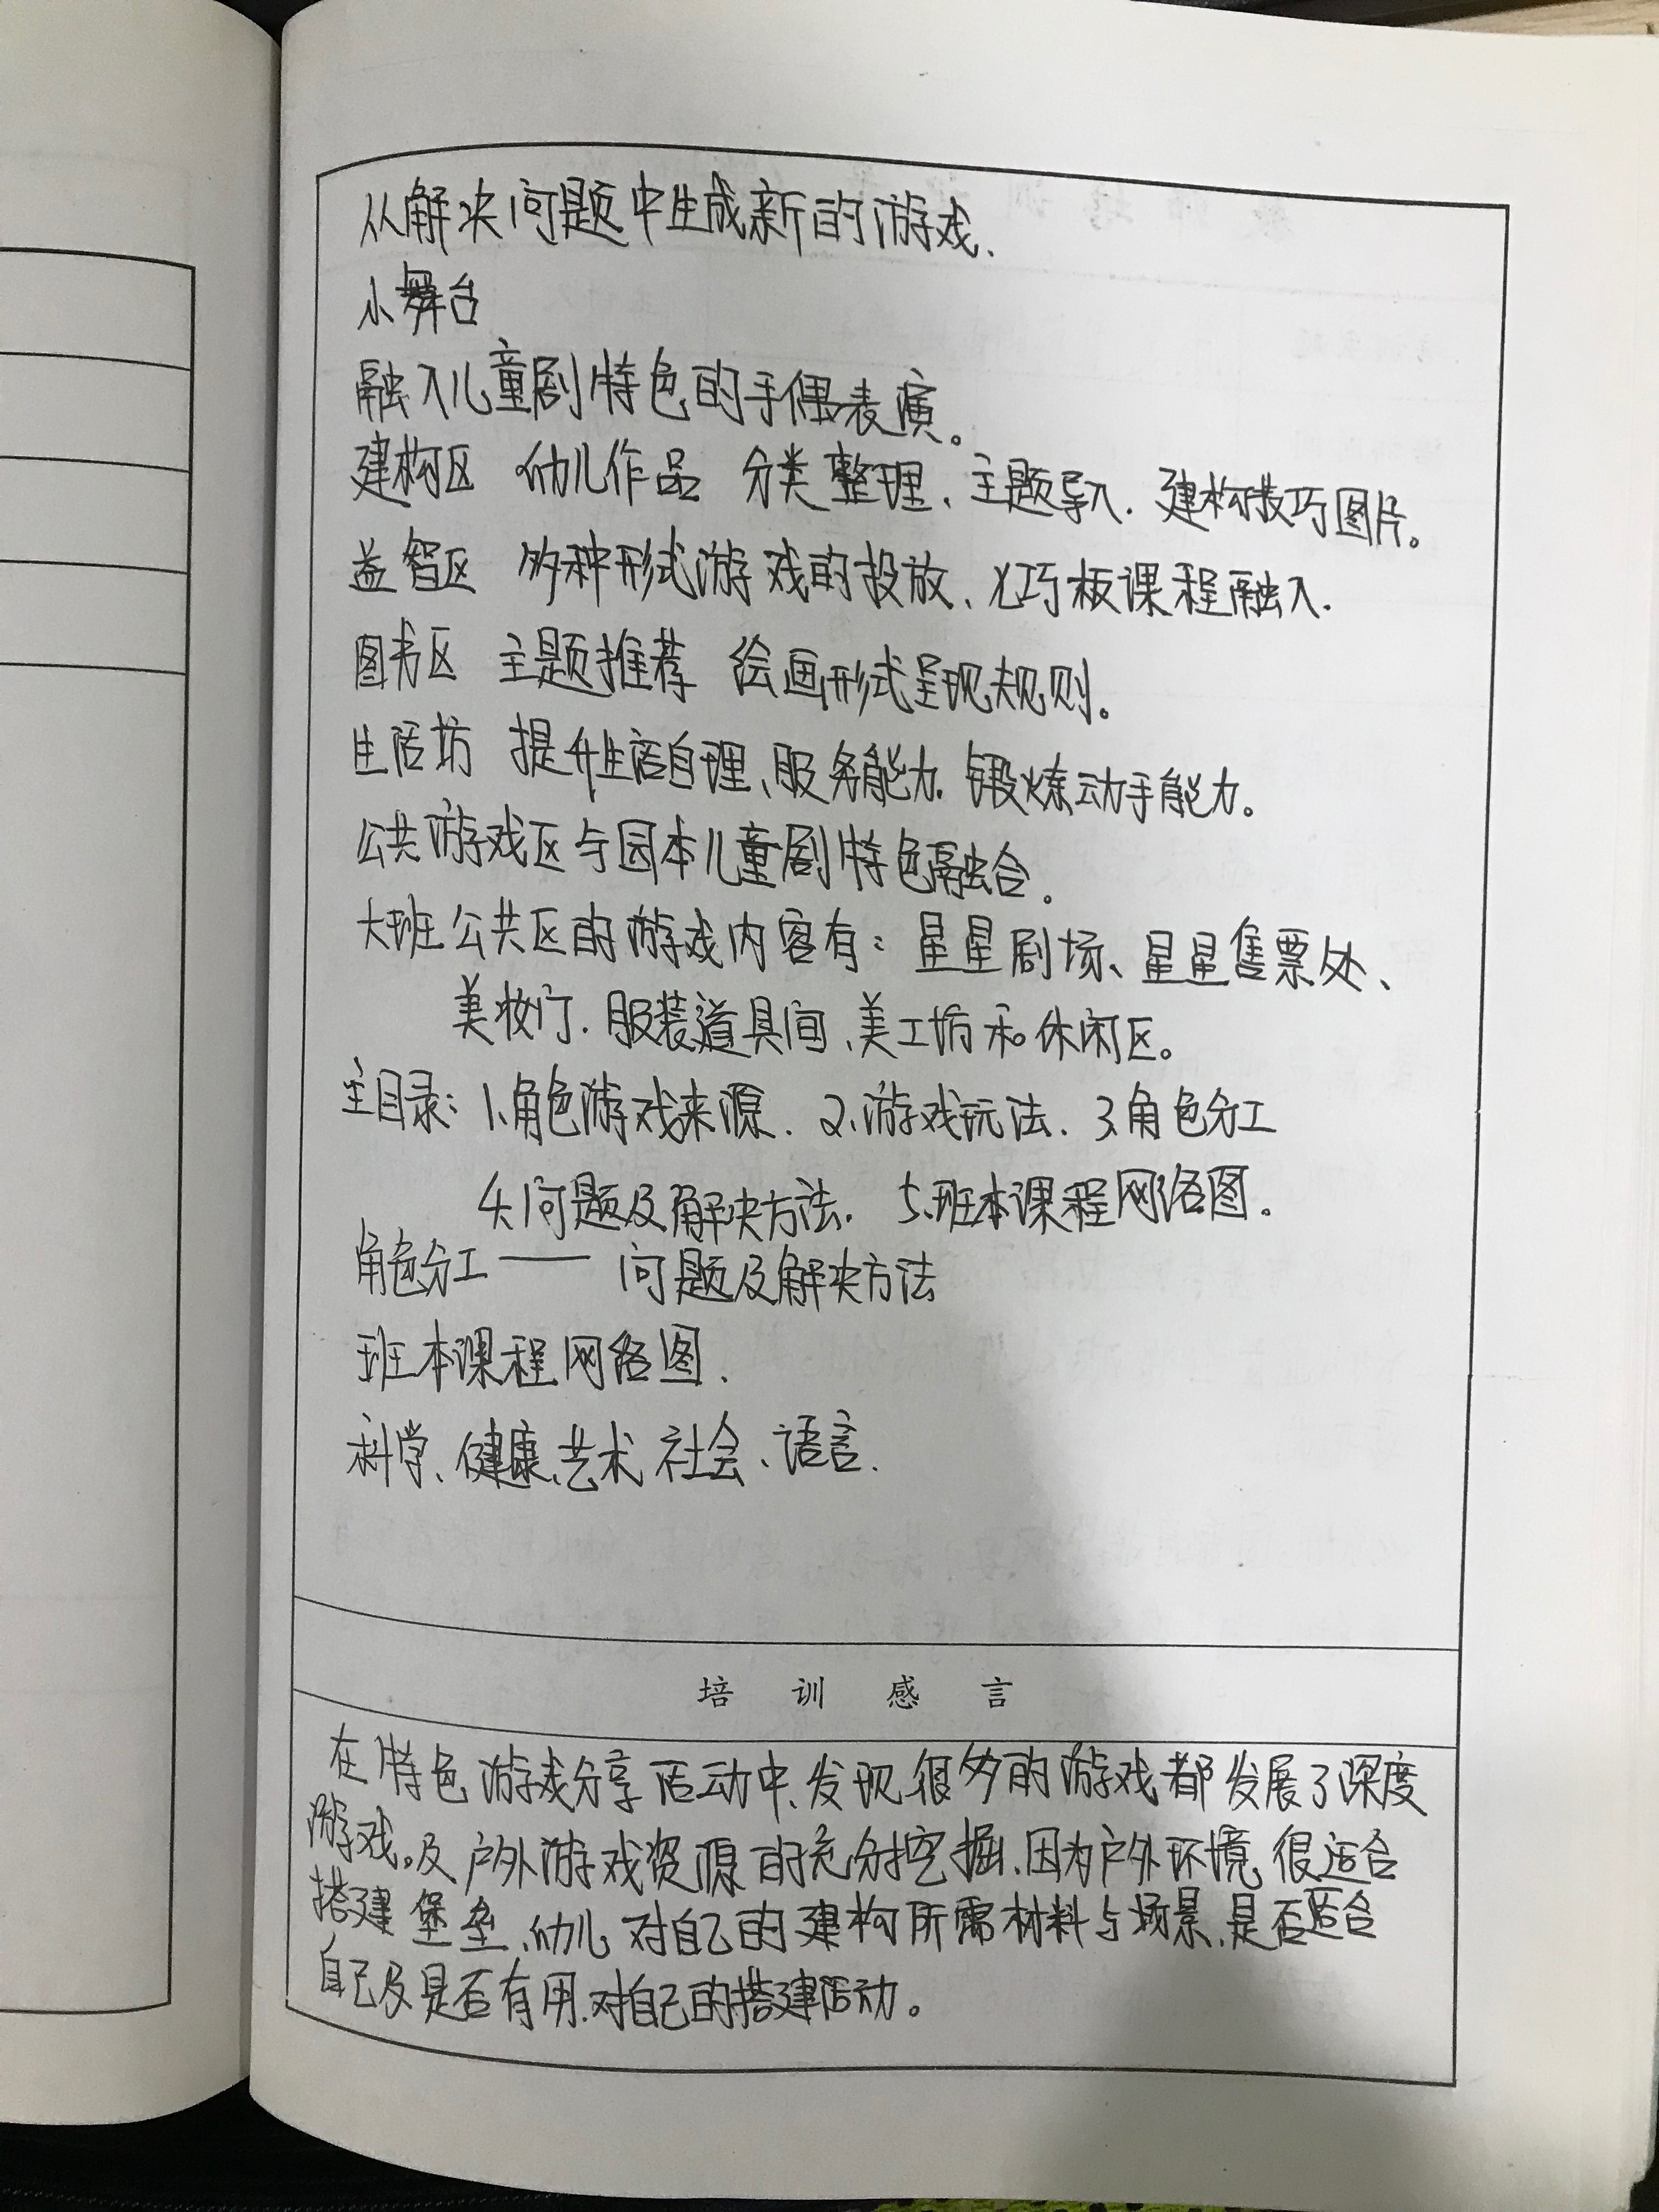 从解决问题中生成新的游戏、
小舞台
融入儿童剧特色的手偶表演。
建构区 幼儿作品 分类整理、主题导入. 建构技巧图片。
益智区 多种形式游戏的投放、七巧板课程融入.
图书区 主题推荐 绘画形式呈现规则。
生活坊 提升生活自理、服务能力. 锻炼动手能力。
公共游戏区与园本儿童剧特色融合。
大班公共区的游戏内容有：星星剧场、星星售票处、
美妆门. 服装道具间、美工坊和休闲区。
主目录：1.角色游戏来源. 2.游戏玩法. 3.角色分工
4.问题及解决方法. 5.班本课程网络图。
角色分工——问题及解决方法
班本课程网络图.
科学、健康、艺术 社会、语言.
培训感言
在特色游戏分享活动中、发现很多的游戏都发展了深度
游戏。及户外游戏资源的充分挖掘、因为户外环境很适合
搭建堡垒、幼儿对自己的建构所需材料与场景、是否适合
自己及是否有用.对自己的搭建活动。